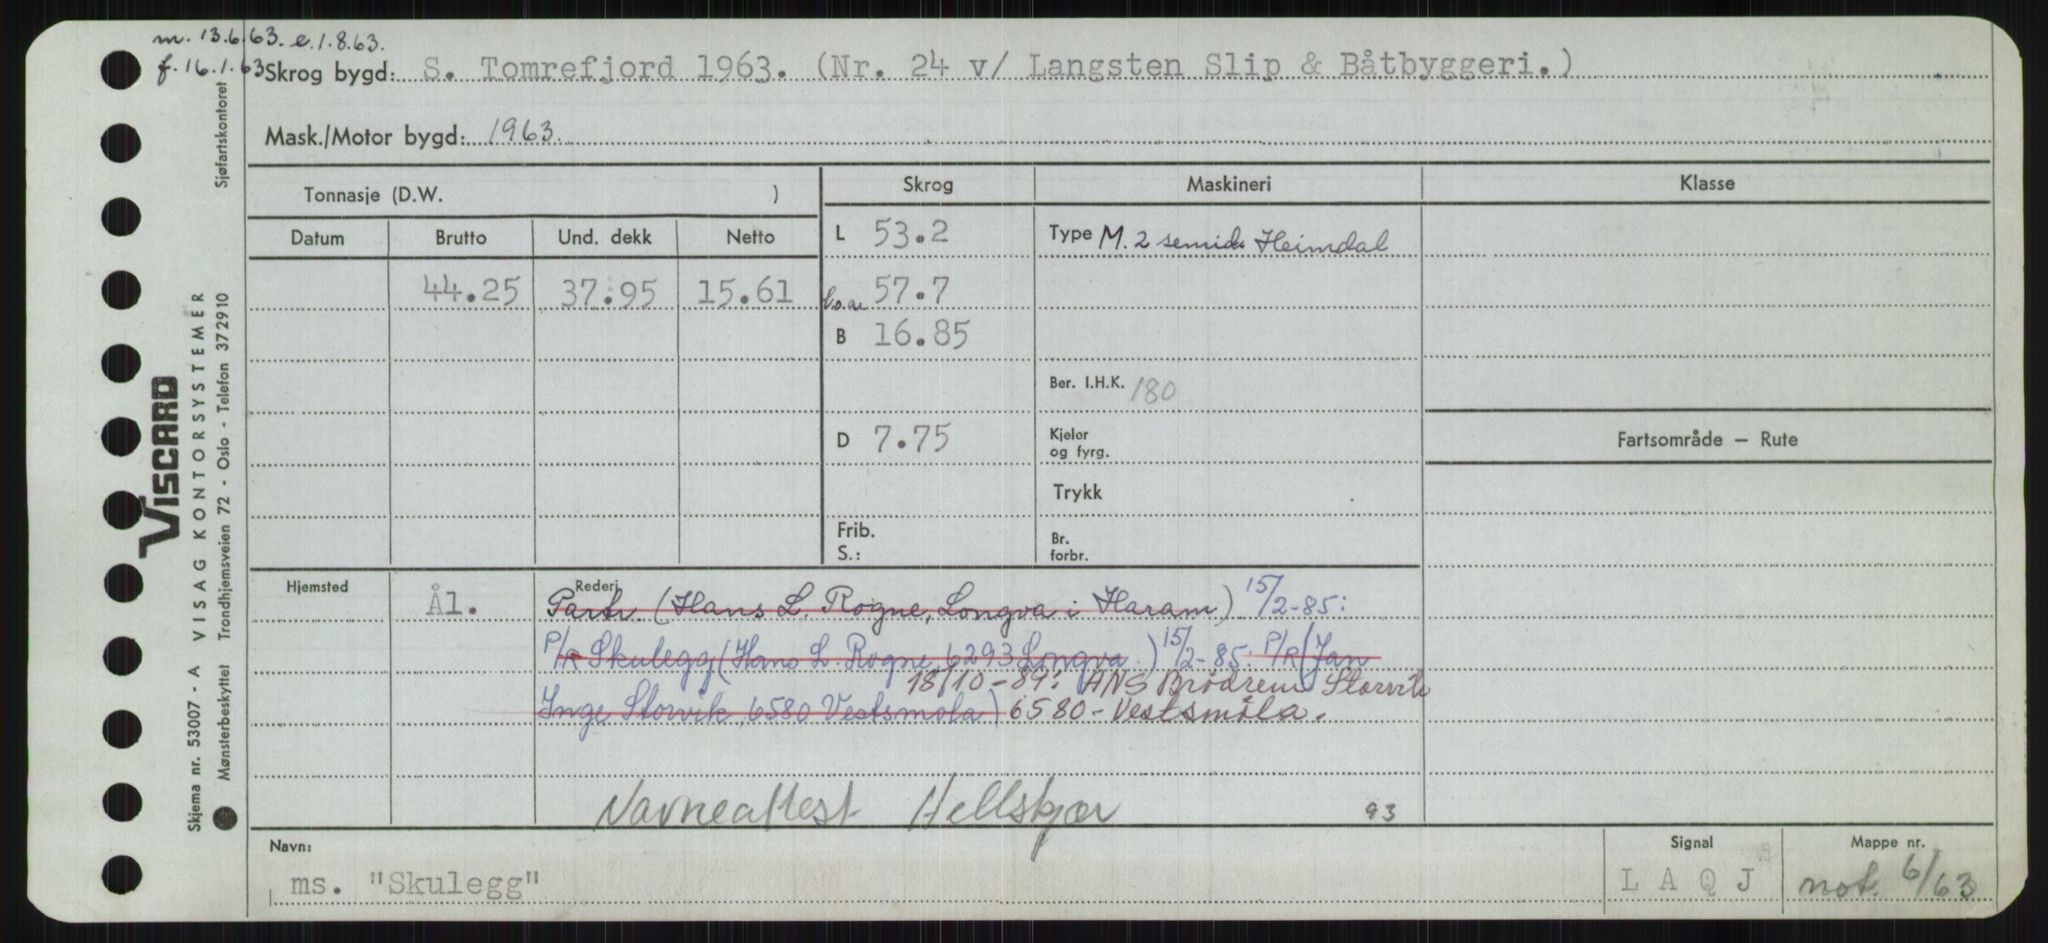 m. 13.6.63. e.1.8.63.
f. 16.1.63
Skrog bygd: S. Tomrefjord 1963. (Nr. 24 v/ Langsten Slip & Båtbyggeri.)
Mask./Motor bygd: 1963.
Tonnasje (D.W. )
Skrog
Maskineri
Klasse
Datum Brutto Und. dekk Netto
L 53.2
Type M. 2 semid. Heimdal
44.25 37.95 15.61
l.o.a. 57.7
B 16.85
Ber. I.H.K. 180
D 7.75
Kjeler
og fyrg.
Fartsområde — Rute
Trykk
Frib.
S.:
Br.
forbr.
Hjemsted Ål.
Rederi
Partr. (Hans L. Rogne, Longva i Haram) 15/2-85:
P/R Skulegg (Hans L. Rogne, 6293 Longva.) 15/2-85: P/R (Jan
18/10-89: ANS Brødrene Storvik
Inge Storvik, 6580 Vestsmøla) 6580 - Vestsmøla.
Navneattest Hellskjær 93
Navn:
ms. "Skulegg"
Signal
L A Q J
Mappe nr.
not. 6/63
Sjøfartskontoret
VISCARD
VISAG KONTORSYSTEMER
Trondhjemsveien 72 - Oslo - Telefon 372910
Skjema nr. 53007 - A
Mønsterbeskyttet